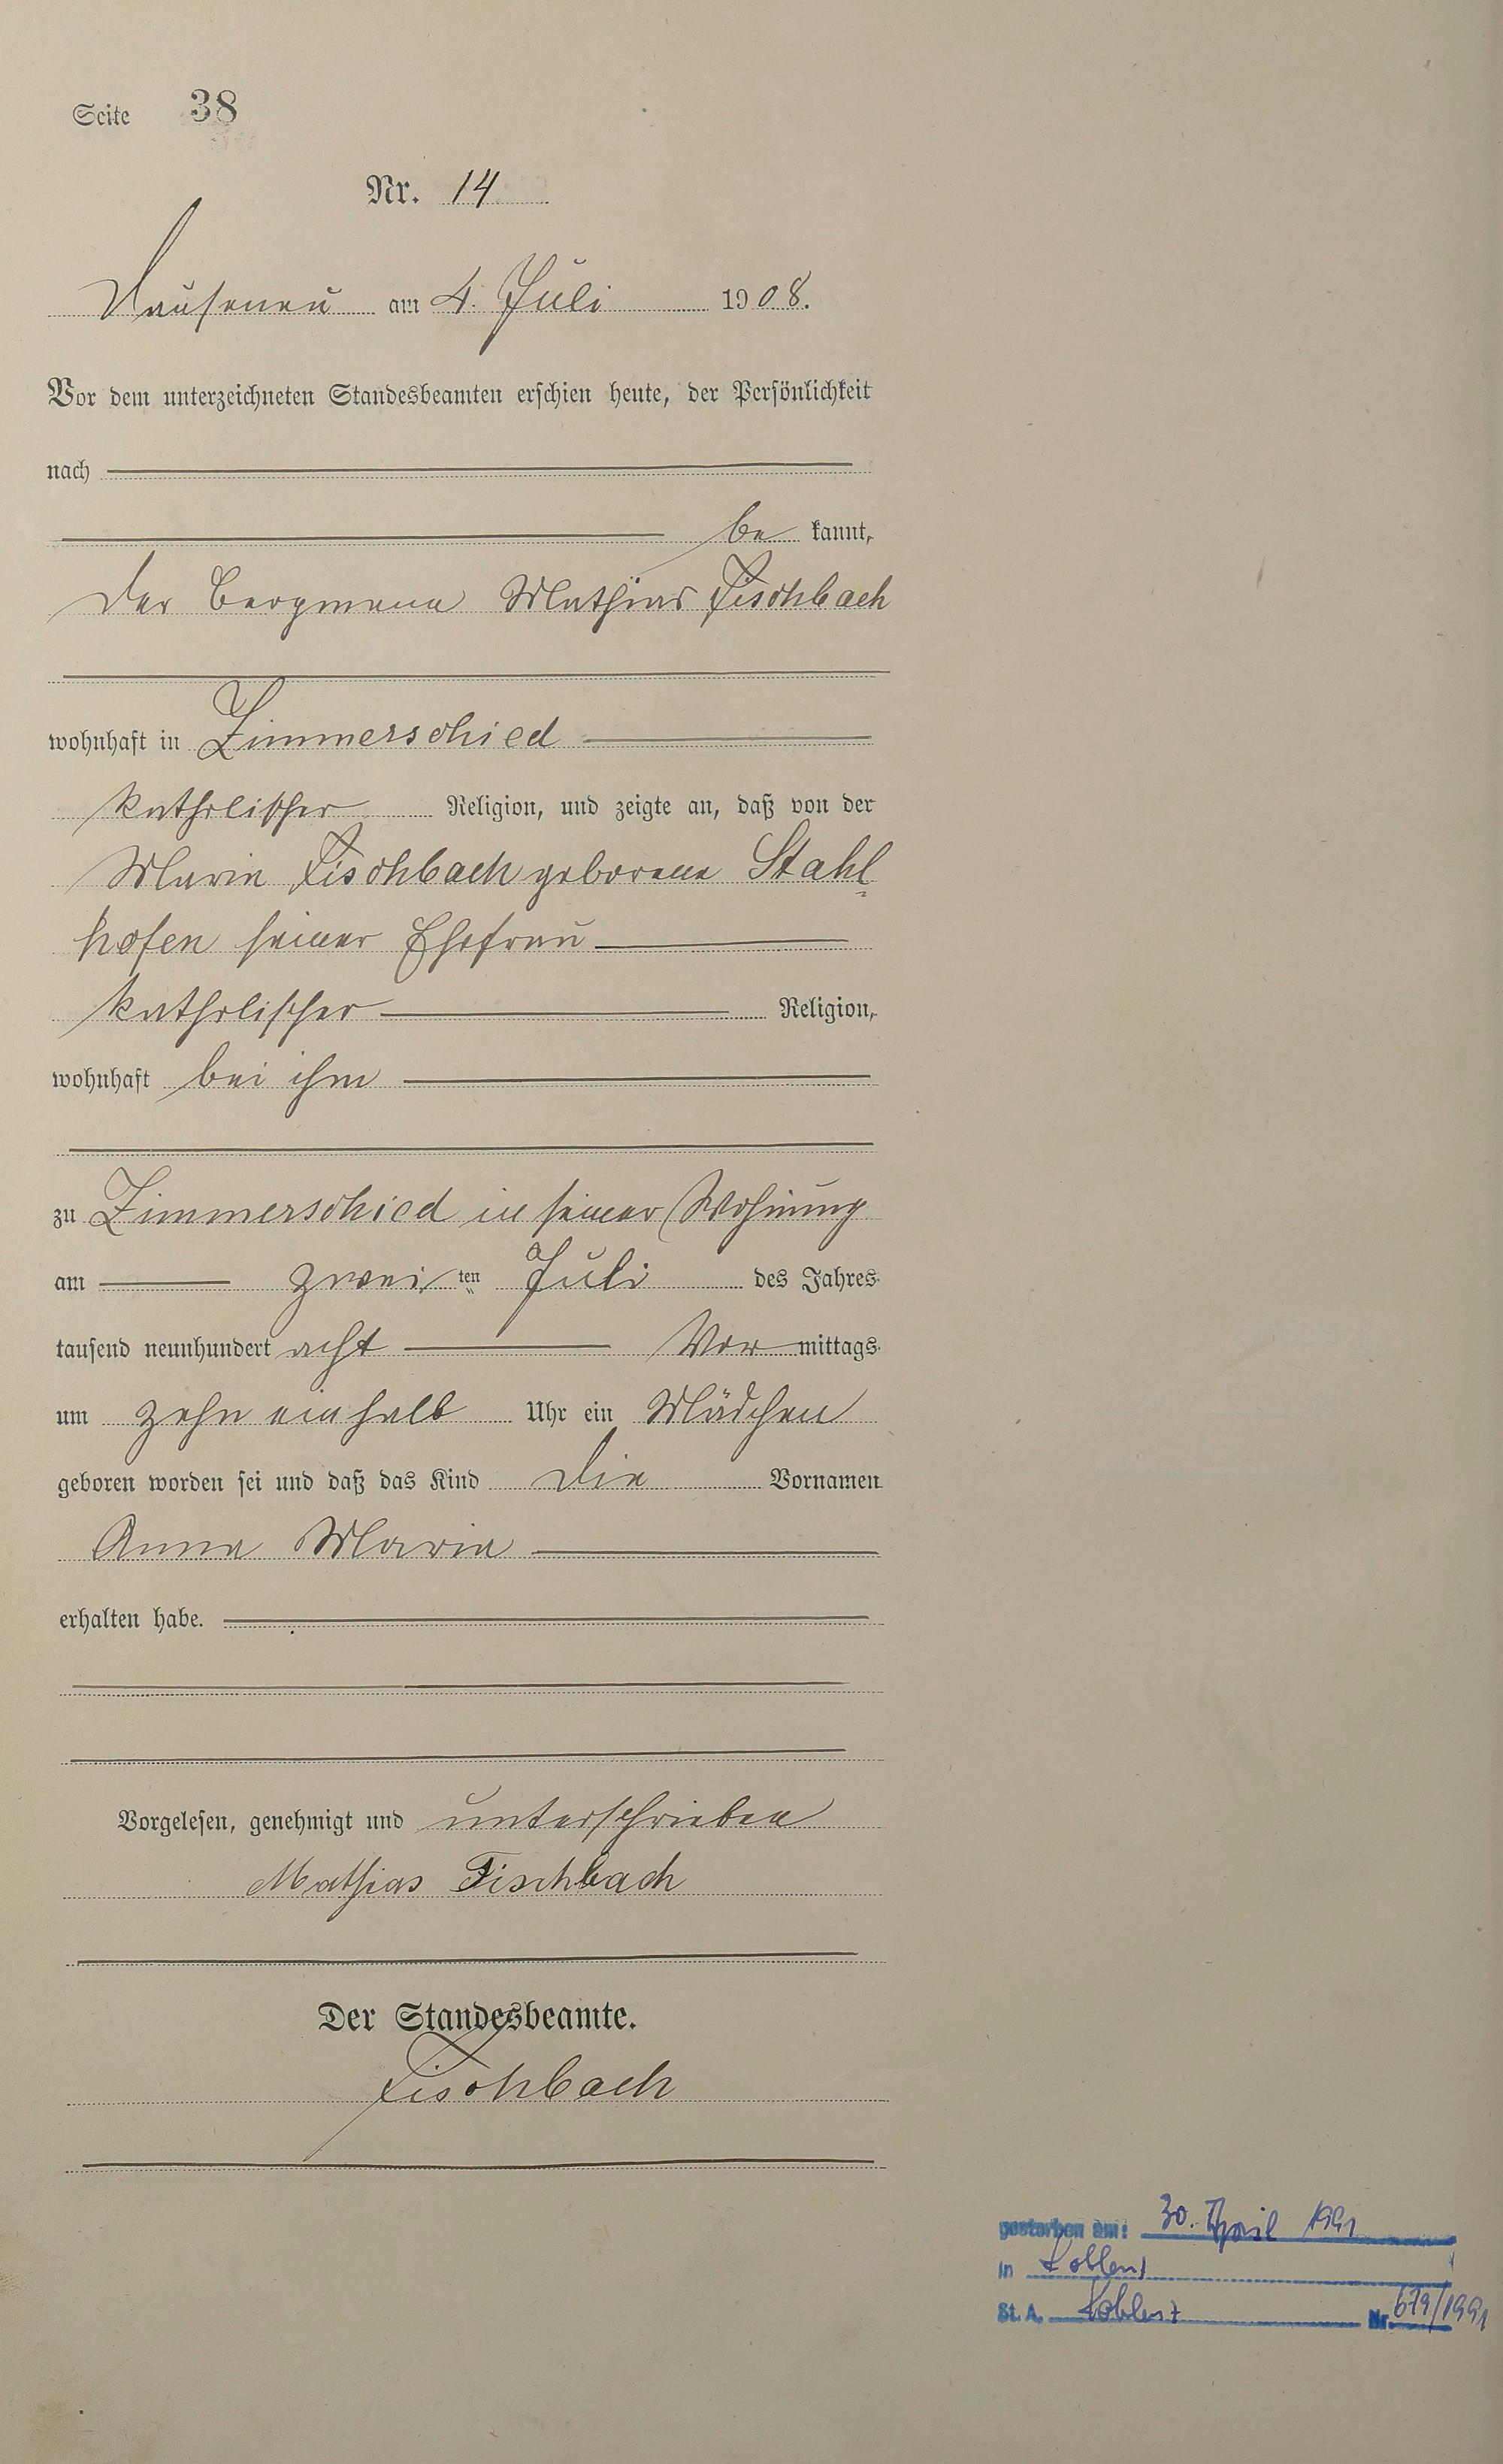 Seite 38
Nr. 14
Dausenau am 4. Juli 1908.
Vor dem unterzeichneten Standesbeamten erschien heute, der Persönlichkeit
nach
be kannt,
der Bergmann Mathias Fischbach
wohnhaft in Zimmerschied
katholischer Religion, und zeigte an, daß von der
Marie Fischbach geborene Stahl
hofen seiner Ehefrau
katholischer Religion,
wohnhaft bei ihm
zu Zimmerschied in seiner Wohnung
am zwei ten Juli des Jahres
tausend neunhundert acht Vor mittags
um zehn einhalb Uhr ein Mädchen
geboren worden sei und daß das Kind die Vornamen
Anna Maria
erhalten habe.
Vorgelesen, genehmigt und unterschrieben
Mathias Fischbach
Der Standesbeamte.
Fischbach
gestorben am: 30. April 1991
in Koblenz
St. A. Koblenz Nr. 679/1991